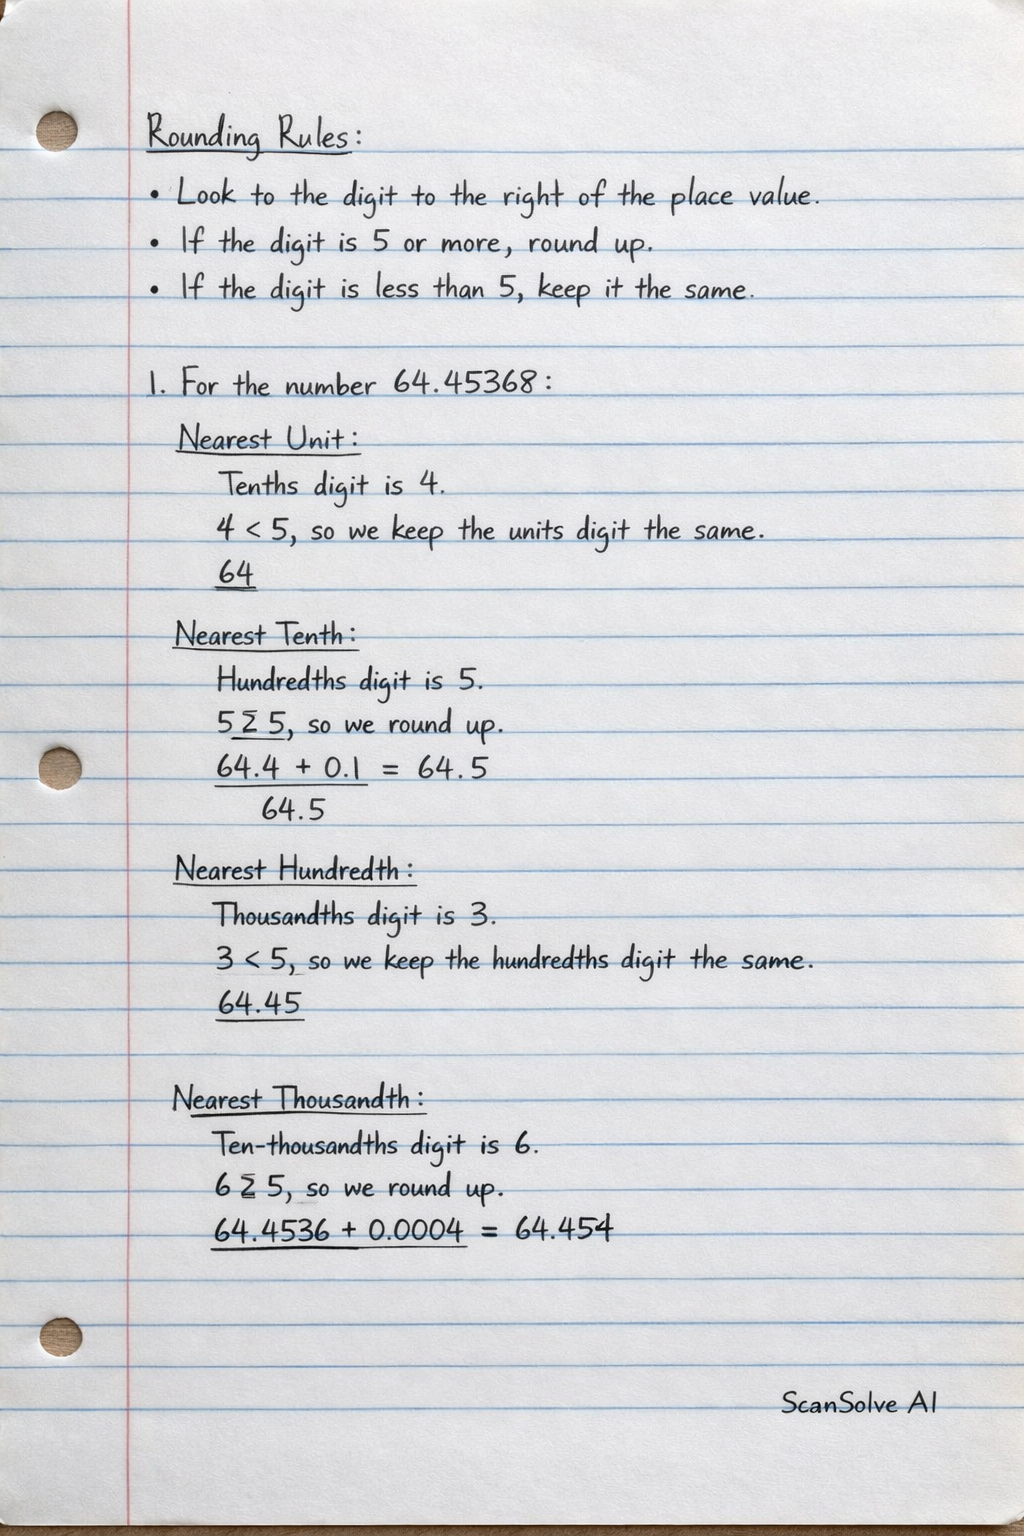 Rounding Rules:
• Look to the digit to the right of the place value.
• If the digit is 5 or more, round up.
• If the digit is less than 5, keep it the same.
1. For the number 64.45368:
Nearest Unit:
Tenths digit is 4.
4 < 5, so we keep the units digit the same.
64
Nearest Tenth:
Hundredths digit is 5.
5 ≥ 5, so we round up.
64.4 + 0.1 = 64.5
64.5
Nearest Hundredth:
Thousandths digit is 3.
3 < 5, so we keep the hundredths digit the same.
64.45
Nearest Thousandth:
Ten-thousandths digit is 6.
6 ≥ 5, so we round up.
64.4536 + 0.0004 = 64.454
ScanSolve AI